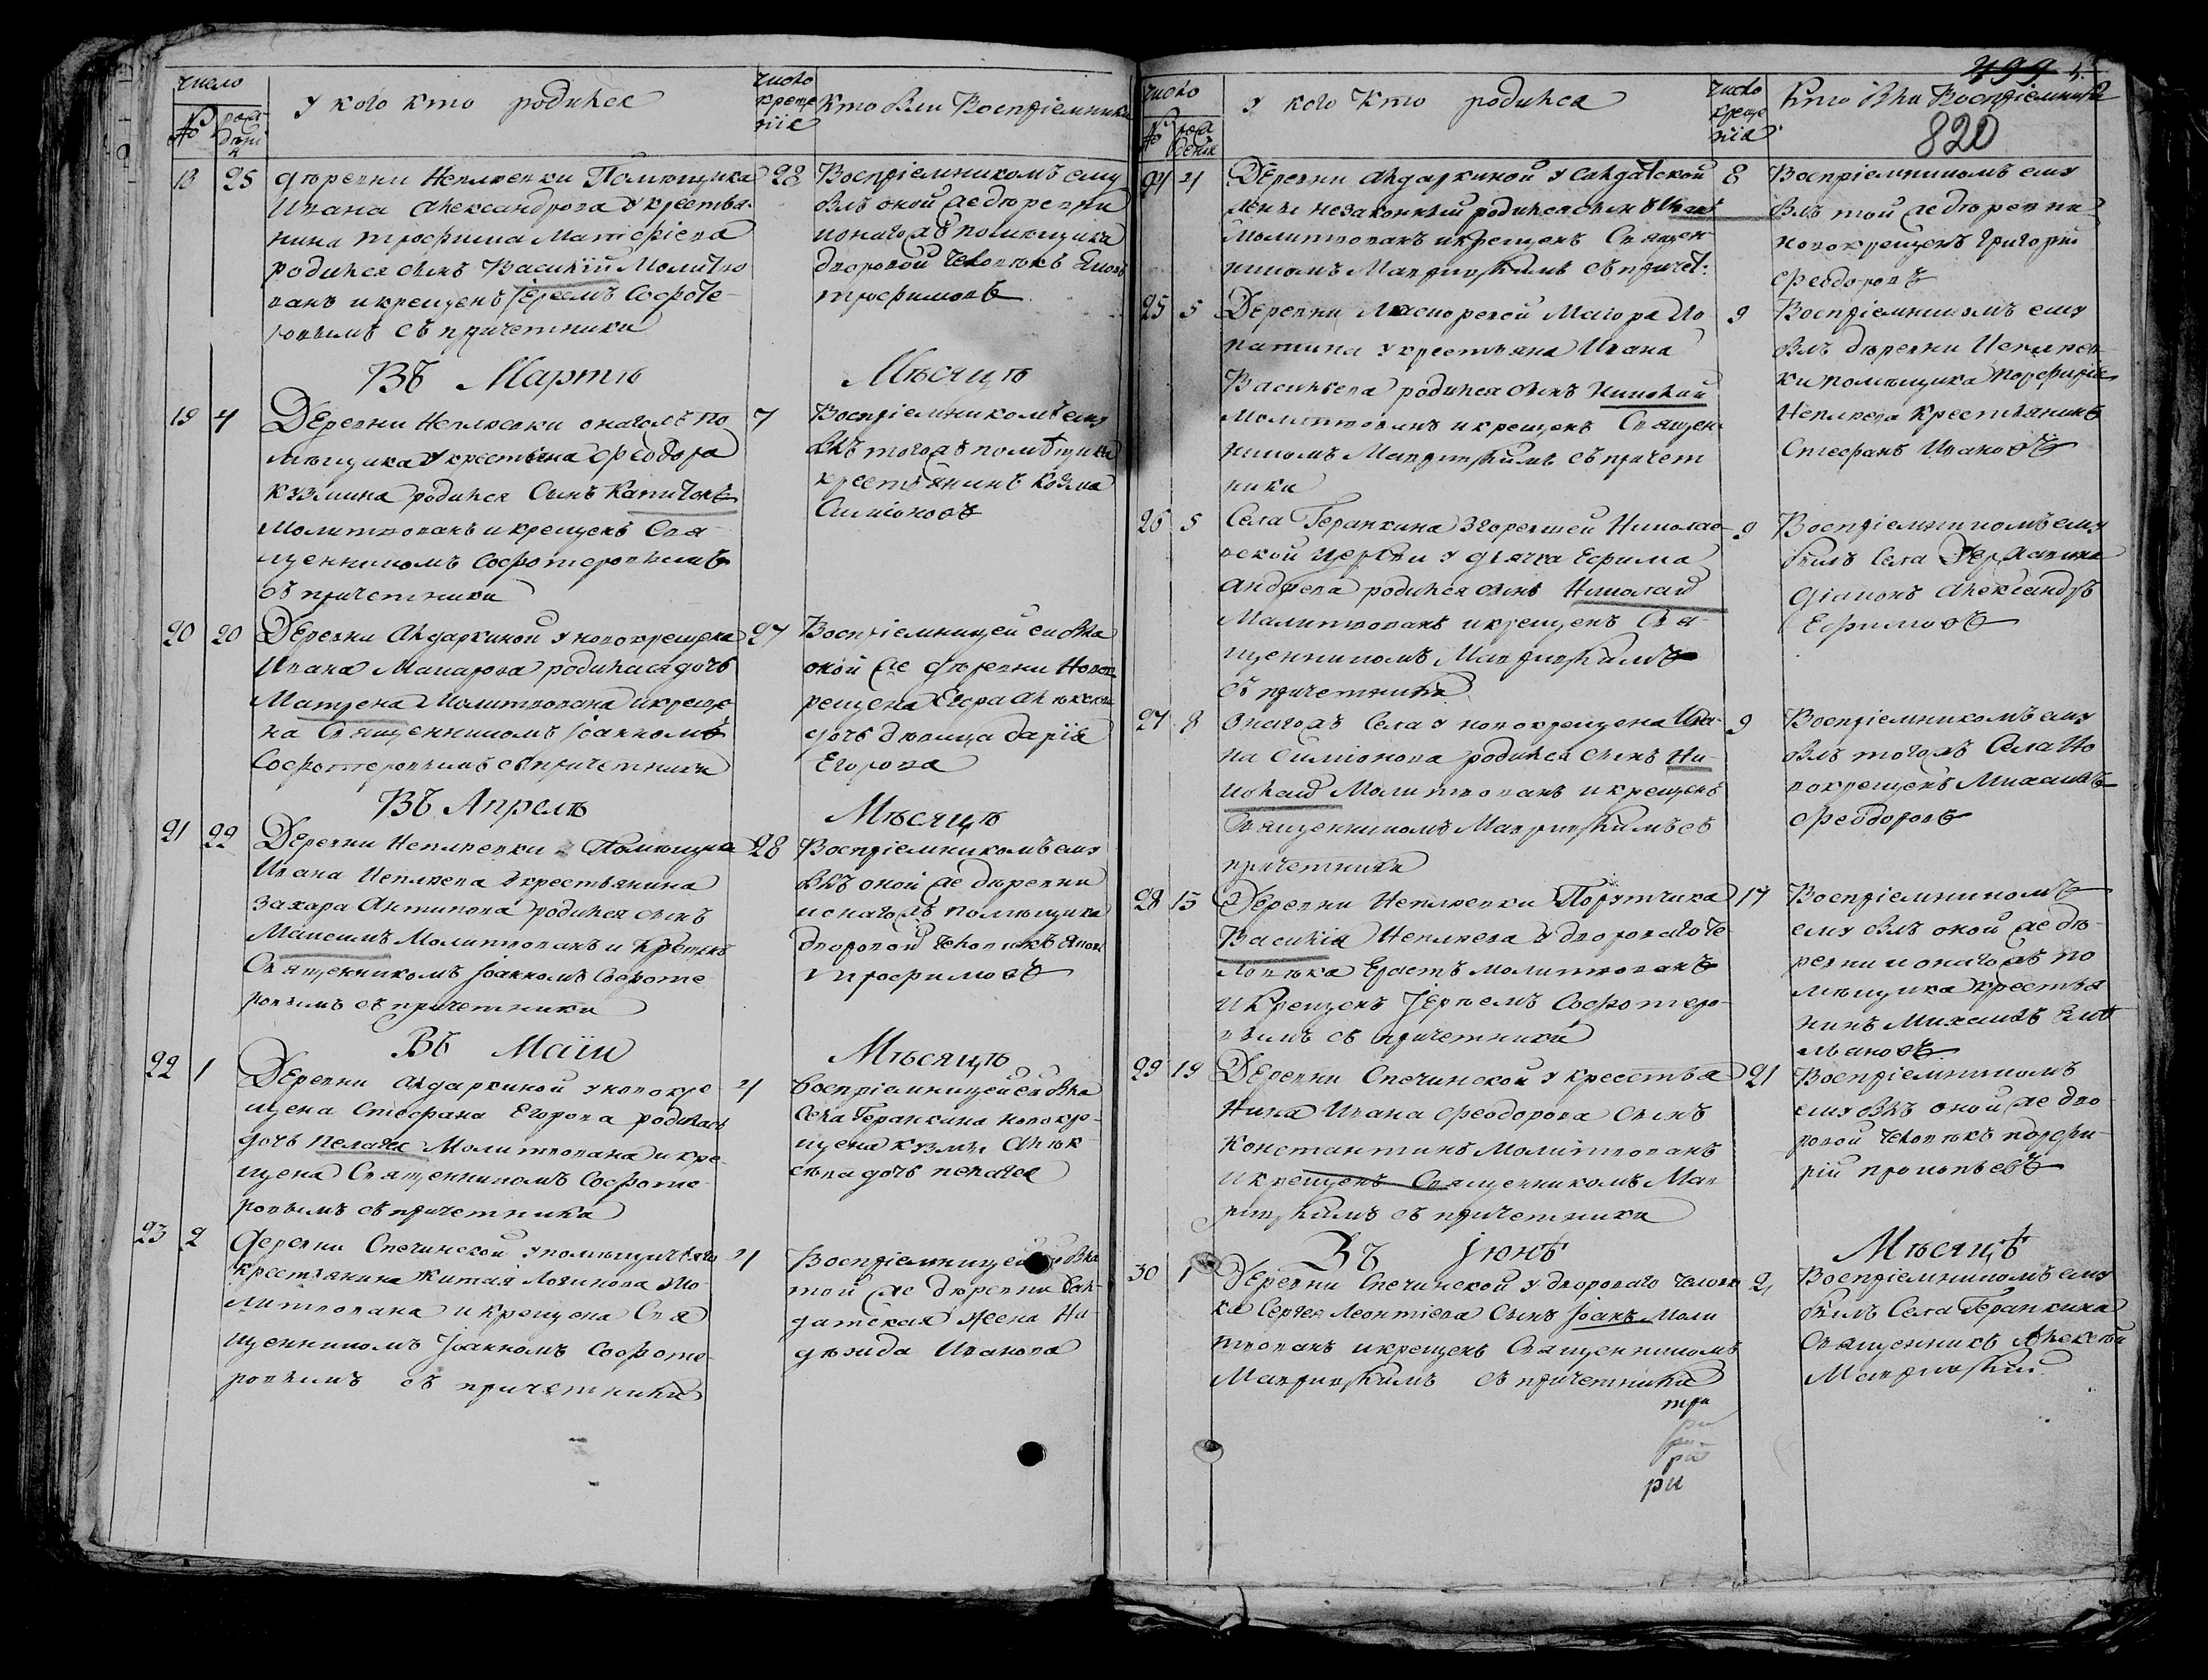 число
у кого кто родился
число крещенiя
кто был Воспрiемники
№ рожденiя
18 25 деревни Неплюевки Помѣщика 28
Ивана Александрова у крестья-
нина Трофима Матфiева
родился сынъ Василiй Молитво
ванъ и крещенъ Iереемъ Софоте-
ровымъ съ причетники
Воспрiемникомъ ему
былъ оной же деревни
и онагожъ помѣщика
дворовой человѣкъ
Трофимовъ
Въ Мартѣ Мѣсяцѣ
19 4 Деревни Неплюевки онагожъ по 7
мѣщика у крестьяна Феодора
Кузмина родился Сынъ Капитонъ
Молитвованъ и крещенъ Свя-
щенникомъ Софотеровымъ
съ причетники
Воспрiемникомъ ему
былъ тогожъ помѣщика
крестьянинъ Козма
Симiоновъ
20 20 Деревни Алдаркиной у новокрещена 27
Ивана Макарова родилася дочь
Матрена Молитвована и креще
на Священникомъ Iоанномъ
Софотеровымъ съ причетники
Воспрiемницей ей была
оной же деревни Новок
рещена Егора Алексѣева
дочь дѣвица Дарiя
Егорова
Въ Апрелѣ Мѣсяцѣ
21 22 Деревни Неплюевки Помѣщика 28
Ивана Неплюева у крестьянина
Захара Антипова родился сынъ
Максимъ Молитвованъ и Крещенъ
Священникомъ Iоанномъ Софоте
ровымъ съ причетники
Воспрiемникомъ ему
былъ оной же деревни
и онагожъ помѣщика
дворовой человѣкъ
Трофимовъ
Въ Маiи Мѣсяцѣ
22 1 Деревни Алдаркиной у новокре 4
щена Стефана Егорова родилась
дочь Пелагея Молитвована и кре
щена Священникомъ Софоте
ровымъ съ причетники
воспрiемницей ей была
Села Геранкина новокре-
щена Кузмы Алек
сѣева дочь Пелагея
23 2 Деревни Спечинской у помѣщичьяго 4
крестьянина Мо-
литвована и Крещена Свя
щенникомъ Iоанномъ Софоте-
ровымъ съ причетники
Воспрiемницей была
той же деревни Сал-
датская жена На-
дѣжда Иванова
499
820
число
у кого Кто родился
число крещенiя
Кто были Воспрiемники
№ рожденiя
24 4 Деревни Алдаркиной у Салдатской 8
жены незаконный родился сынъ
Молитвованъ и крещенъ Священ-
никомъ Мавринскимъ съ причет:
Воспрiемникомъ ему
былъ той же деревни
новокрещенъ Григорiй
Феодоровъ
25 5 Деревни Маiора Ло- 9
патина у крестьяна Ивана
Васильева родился сынъ Николай
Молитвованъ и крещенъ Священ-
никомъ Мавринскимъ съ причет
ники
Воспрiемникомъ ему
былъ деревни Неплюев-
ки помѣщика Порфирiя
Неплюева Крестьянинъ
Стефанъ Ивановъ
26 5 Села Геранкина згоревшей Николаев- 9
ской церкви у дьячка Ефима
Андреева родился сынъ Николай
Малитвованъ и крещенъ Свя-
щенникомъ Мавринскимъ
съ причетники
Воспрiемникомъ ему
былъ Села Державина
дiаконъ Александръ
Ефимовъ
27 8 Онагожъ Села у новокрещена Ива- 9
на Симiонова родился сынъ Ни-
колай Молитвованъ и крещенъ
Священникомъ Мавринскимъ съ
причетники
Воспрiемникомъ ему
былъ тогожъ Села Но
вокрещенъ Михаилъ
Феодоровъ
28 13 Деревни Неплюевки Порутчика 17
Василiя Неплюева у двороваго че
ловѣка Ерастъ молитвованъ
и Крещенъ Iереемъ Софотеро-
вымъ съ причетники
Воспрiемникомъ
ему былъ оной же де-
ревни и онагожъ по
мѣщика крестья
нинъ Михаилъ Емѣ
льяновъ
29 19 Деревни Спечинской у крестья 21
нина Ивана Феодорова Сынъ
Константинъ Молитвованъ
и крещенъ Священникомъ Мав
ринскимъ съ причетники
Воспрiемникомъ
ему былъ оной же дво-
ровой человѣкъ Порфи-
рiй Прокопьевъ
Въ Iюнѣ Мѣсяцѣ
30 1 Деревни Спечинской у двороваго человѣ 2
ка Сергея Леонтiева Сынъ Iоанъ Моли
твованъ и крещенъ Священникомъ
Мавринскимъ съ причетники
Воспрiемникомъ ему
былъ Села Геранкина
Священникъ Алексѣй
Мавринскiй
три
ри
ри
ри
ри